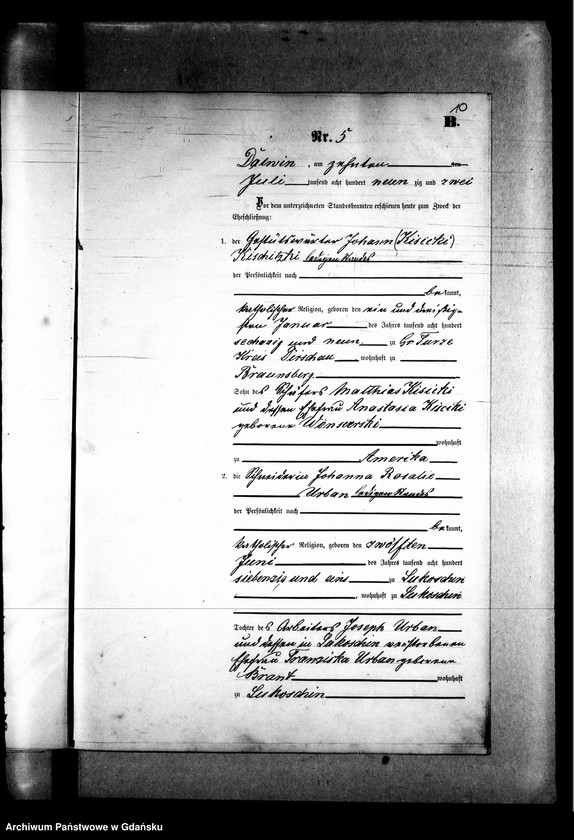 10
B.
Nr. 5
Dalwin, am zehnten
Juli tausend acht hundert neun zig und zwei
Vor dem unterzeichneten Standesbeamten erschienen heute zum Zweck der
Eheschließung:
1. der Gestütswärter Johann (Kisicki)
Kischitzki ledigen Standes
der Persönlichkeit nach
bekannt,
katholischer Religion, geboren den ein und dreißig-
sten Januar des Jahres tausend acht hundert
sechszig und neun zu Gr Turze
Kreis Dirschau, wohnhaft zu
Braunsberg
Sohn des Schäfers Matthias Kisicki
und dessen Ehefrau Anastasia Kisicki
geborene
wohnhaft
zu Amerika
2. die Schneiderin Johanna Rosalie
Urban ledigen Standes
der Persönlichkeit nach
bekannt,
katholischer Religion, geboren den zwölften
Juni des Jahres tausend acht hundert
siebenzig und eins zu Lukoschin
, wohnhaft zu Lukoschin
Tochter des Arbeiters Joseph Urban
und dessen in Lukoschin verstorbenen
Ehefrau Franziska Urban geborene
Brant wohnhaft
zu Lukoschin
Archiwum Państwowe w Gdańsku